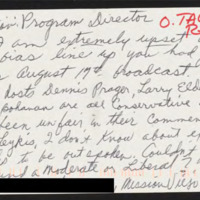 Program Director O. TA
I am extremely upset
bias line up you had
August 19th broadcast.
hosts Dennis Prager, Larry Eld
are all Conservative.
been unfair in their commen
I don't know about e
to be outspoken. Couldn't
a moderate or Liberal?
Mission Viejo